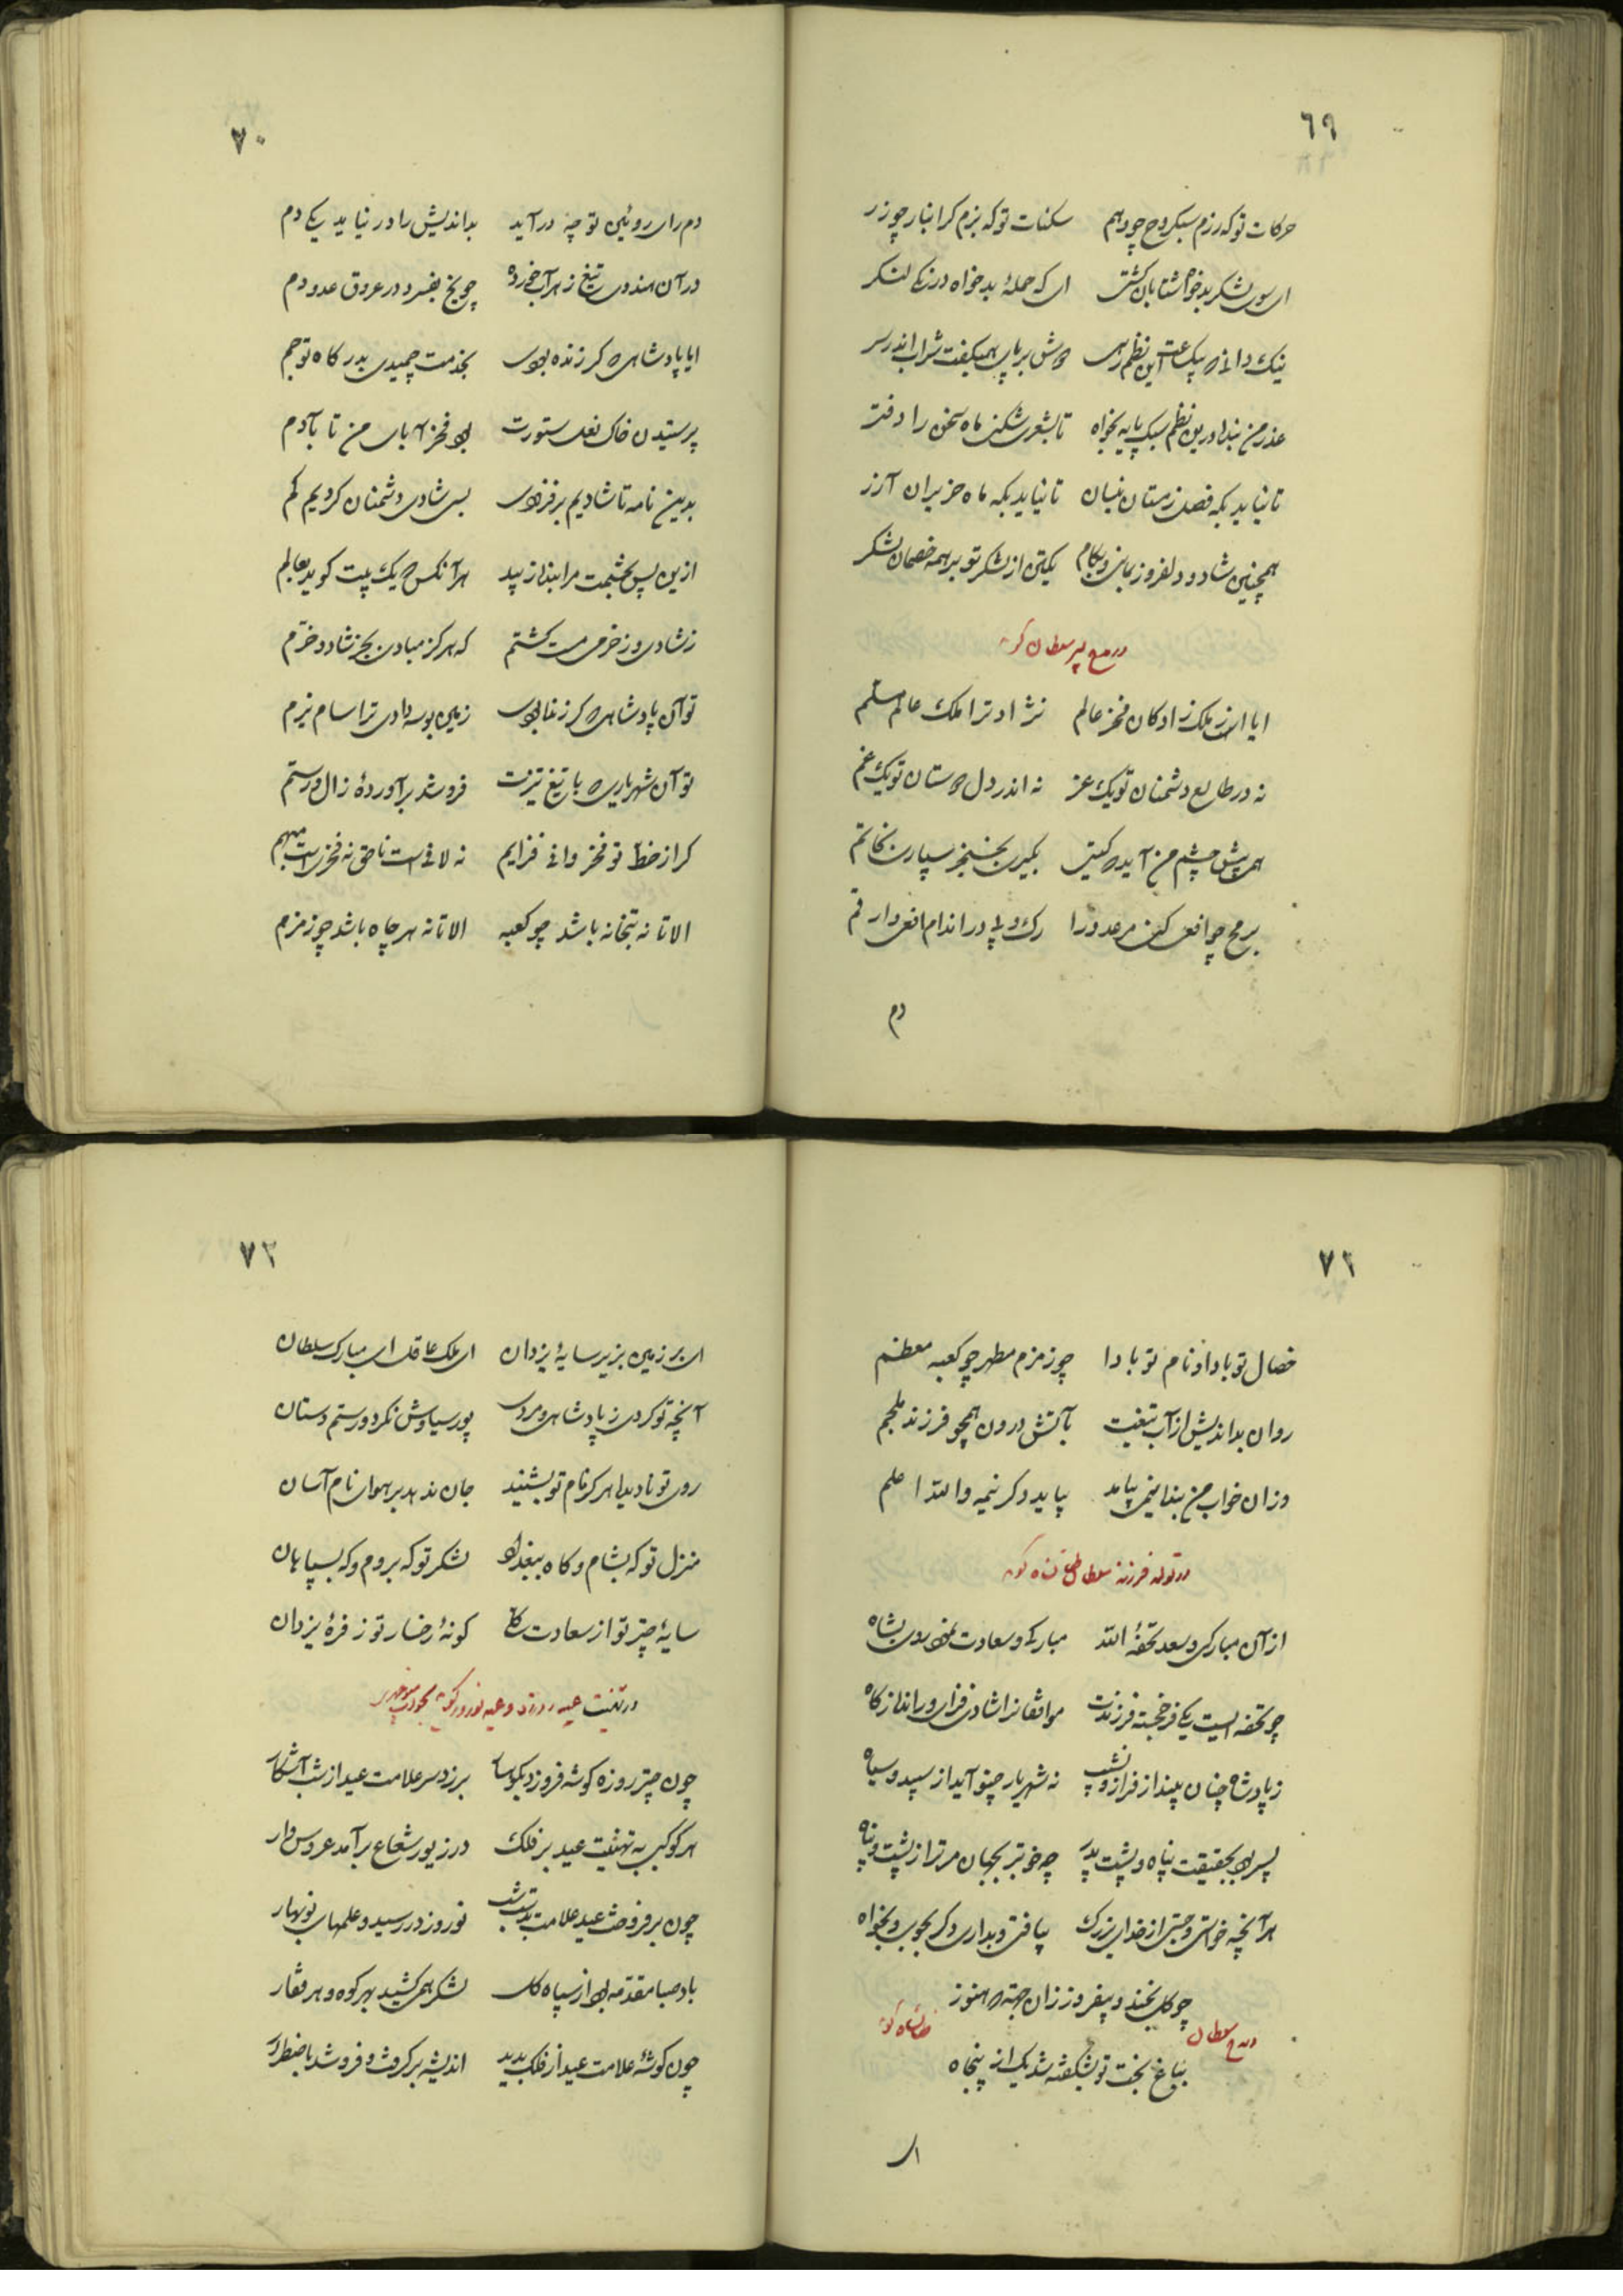 ٦٩
حرکات تو که رزم سبکروح چو دهم سکنات تو که بزم کرانبار چو زر
ای سوی لشکر بدخواه شتابان کشتی ای که حملهٔ بدخواه درنکی لنکر
نیک دانی که بیک ساعت این نظم رهی بر پای همیکفت شراب اندر سر
عذر من بنده درین نظم سبک پایه بخواه تا بشعری شکنم ماه سخن را دفتر
تا نیاید بکه فصل زمستان نیسان تا نیاید بکه ماه حزیران آذر
همچنین شاد و دلفروز بمان و بکام یکتن از لشکر تو بر همه خصمان لشکر
در مدح پسر سلطان کوید
ایا از ملک زادکان فخر عالم نژاد ترا ملک عالم مسلم
نه در طالع دشمنان تو یک عز نه اندر دل دوستان تو یک غم
همی پیش چشم من آید که کیتی بکیری بخنجر سپاری بخاتم
برمح چو افعی کنی مر عدو را رک و پی در اندام افعی ارقم
دم
٧٠
دم رای روئین تو چه درآید بداندیش را در نیاید یکی دم
در آن هندوی تیغ زهرآب خورده چو یخ بفسرد در عروق عدو دم
ایا پادشاهی که کر زنده بودی بخدمت چمیدی بدرکاه تو جم
پرستیدن خاک نعل ستورت بود فخر آبای من تا بآدم
بدین نامه تا شادیم برفزودی بسی شادی دشمنان کردیم کم
ازین پس بچشمت مرا بنده از پید هر آنکس که یک بیت کوید بعالم
ز شادی و ز خرمی مست کشتم که هرکز مبادی بجز شاد و خرم
تو آن پادشاهی که کر زنده بودی زمین بوسه دادی ترا سام نیرم
تو آن شهریاری که با تیغ تیزت فروشد برآوردهٔ زال و رستم
کر از خط تو فخر وافی فزایم نه لافی است ناحق نه فخریست مبهم
الا تا نه بتخانه باشد چو کعبه الا تا نه هر چاه باشد چو زمزم
٧١
خصال تو بادا و نام تو بادا چو زمزم مطهر چو کعبه معظم
روان بداندیش از آب تیغت بآتش درون همچو فرزند ملجم
وزان خواب من بنده نیمی بیامد بیاید دکر نیمه والله اعلم
در تولد فرزند سلطان طغانشاه کوید
از آن مبارکی و سعد تحفهٔ الله مبارکی و سعادت نمود روی بشاه
چو تحفه ایست یکی فرخجسته فرزندت موافقانرا شادی فزای و رانده ز کاه
ز پادشاه چنان بیند از فراز و نشیب نه شهریار چنو آید از سپید و سیاه
پسر بود بحقیقت پناه و پشت پدر چه خوبتر بجهان مر ترا ز پشت و پناه
هر آنچه خواستی و جستی از خدای بزرک بیافتی و بداری دکر بجوی و بخواه
چو کل بخند و بیفروز زان جهت که هنوز
بباغ بخت تو بشکفته شد یک از پنجاه
در مدح سلطان طغانشاه کوید
ای
٧٢
ای بر زمین بزیر سایهٔ یزدان ای ملک عاقل ای مبارک سلطان
آنچه تو کردی ز پادشاهی و مردی پور سیاوش نکرد و رستم دستان
روی تو نادیده هر که نام تو بشنید جان ندهد بر هوای نام آسان
منزل تو که بشام و کاه ببغداد لشکر تو که بروم و که بسپاهان
سایهٔ چتر تو از سعادت کلی کونهٔ رخسار تو ز فرهٔ یزدان
در تهنیت عید روزه و عید نوروز کوید
چون چتر روزه کوشه فرو زد بکوهسار برزد سر علامت عید از شب آشکار
هر کوکبی به تهنیت عید بر فلک در زیور شعاع برآمد عروس‌وار
چون برفروخت عید علامت بدست شب نوروز در رسید و علمهای نوبهار
باد صبا مقدمه بود از سپاه کل لشکر همی کشید بهر کوه و هر قفار
چون کوشهٔ علامت عید از فلک بدید اندیشه برکرفت و فروشد باضطرار